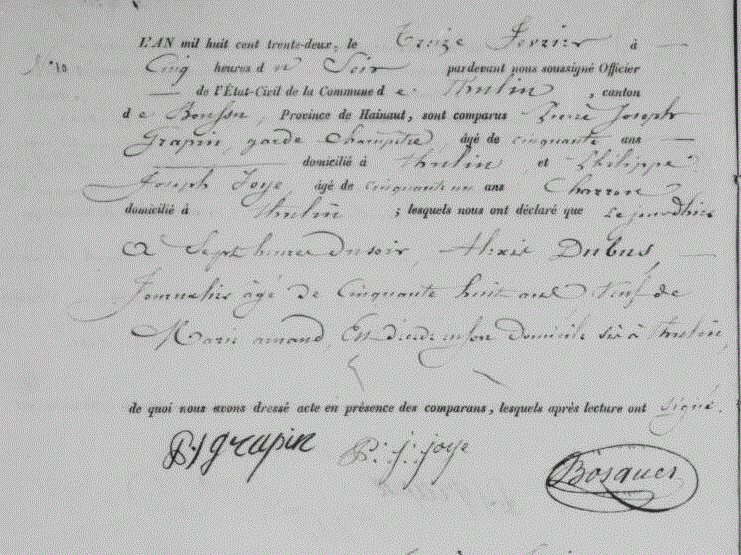 L'AN mil huit cent trente-deux, le Treize Fevrier à
N° 10 Cinq heures du Soir pardevant nous soussigné Officier
de l'État-Civil de la Commune de Thulin, canton
de Boussu, Province de Hainaut, sont comparus Pierre Joseph
Grapin, garde Champètre, âgé de cinquante ans
domicilié à Thulin, et Philippe
Joseph Joye, âgé de cinquante un ans Charron
domicilié à Thulin; lesquels nous ont déclaré que Le jour d'hier
a Sept heures du soir, Alexis Dubus,
Journalier âgé de Cinquante huit ans Veuf de
Marie amand, Est décédé en son Domicile sis à Thulin,
de quoi nous avons dressé acte en présence des comparans, lesquels après lecture ont signé.
P:J grapin P: j: joye Bosquet